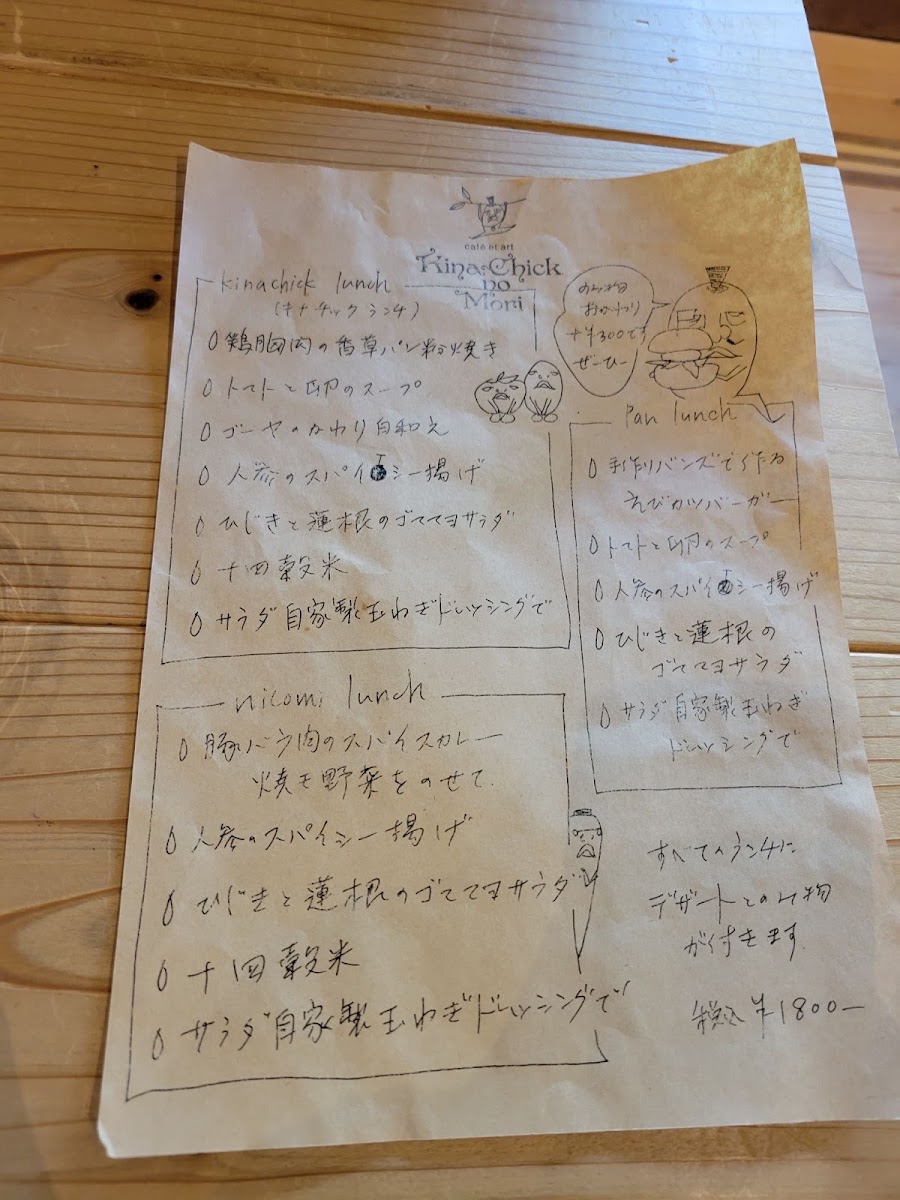 café et art
Kina Chick
no
Mori
kinachick lunch
(キナチックランチ)
鶏胸肉の香草パン粉焼き
トマトと卵のスープ
ゴーヤのなめり白和え
人参のスパイシー揚げ
ひじきと蓮根のゴママヨサラダ
十四穀米
サラダ自家製玉ねぎドレッシングで
のみ物
おかわり
+¥300です
ぜーひー
Pan lunch
手作りバンズで作る
えびカツバーガー
トマトと卵のスープ
人参のスパイシー揚げ
ひじきと蓮根の
ゴママヨサラダ
サラダ自家製玉ねぎ
ドレッシングで
nicomi lunch
豚バラ肉のスパイスカレー
焼き野菜をのせて
人参のスパイシー揚げ
ひじきと蓮根のゴママヨサラダ
十四穀米
サラダ自家製玉ねぎドレッシングで
すべてのランチに
デザートとのみ物
が付きます
税込¥1800-